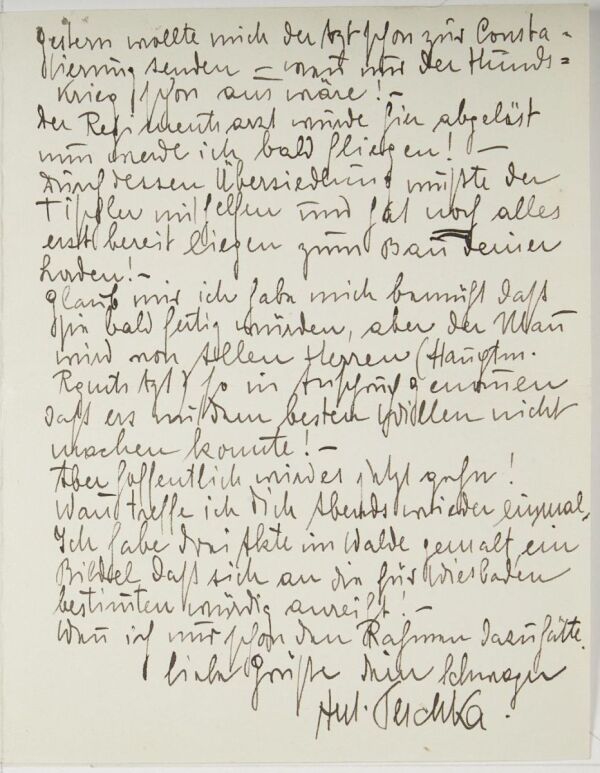 Gestern wollte mich der Arzt schon zur Consta-
tierung senden – wenn nur der Hunds=
krieg schon aus wäre! –
Der Regimentsarzt wurde hier abgelöst
nun werde ich bald fliegen! –
Durch dessen Übersiedlung mußte der
Tischler mithelfen und hat noch alles
erst bereit liegen zum Bau deiner
Laden! –
Glaub mir ich habe mich bemüht daß
sie bald fertig würden, aber der Mañ
wird von allen Herren (Hauptm.
Regmts Azt) so in Anspruch genomen
daß ers mit dem besten Willen nicht
machen konnte! –
Aber hoffentlich wird es jetzt gehn!
Wañ treffe ich dich Abends wieder einmal,
Ich habe drei Akte im Walde gemalt, ein
Bildel, daß sich an die für Wiesbaden
bestimten würdig anreiht! –
Weñ ich nur schon den Rahmen dazu hätte.
Liebe Grüße dein Schwager
Ant. Peschka.